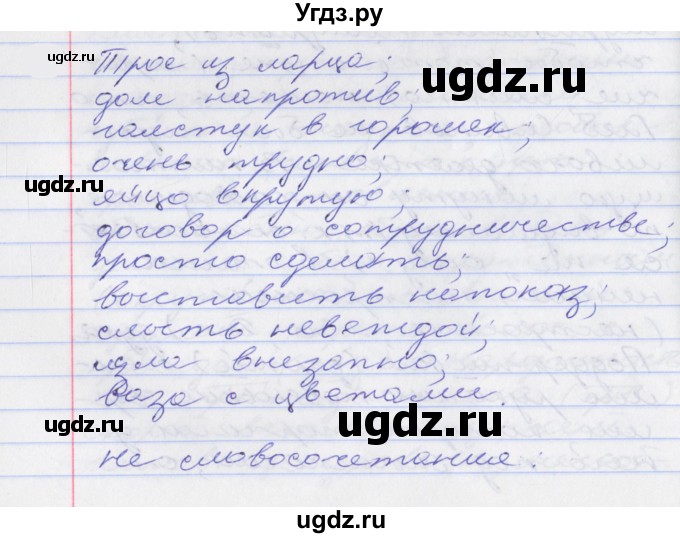 Угдз.ру
Трое из ларца;
дом напротив;
галстук в горошек;
очень трудно;
яйцо вкрутую;
договор о сотрудничестве;
просто сделать;
выставить напоказ;
слыть невеждой;
шла внезапно;
ваза с цветами.
не словосочетание:
ugdz.ru
ugdz.ru
ugdz.ru
ugdz.ru
ugdz.ru
ugdz.ru
ugdz.ru
ugdz.ru
ugdz.ru
ugdz.ru